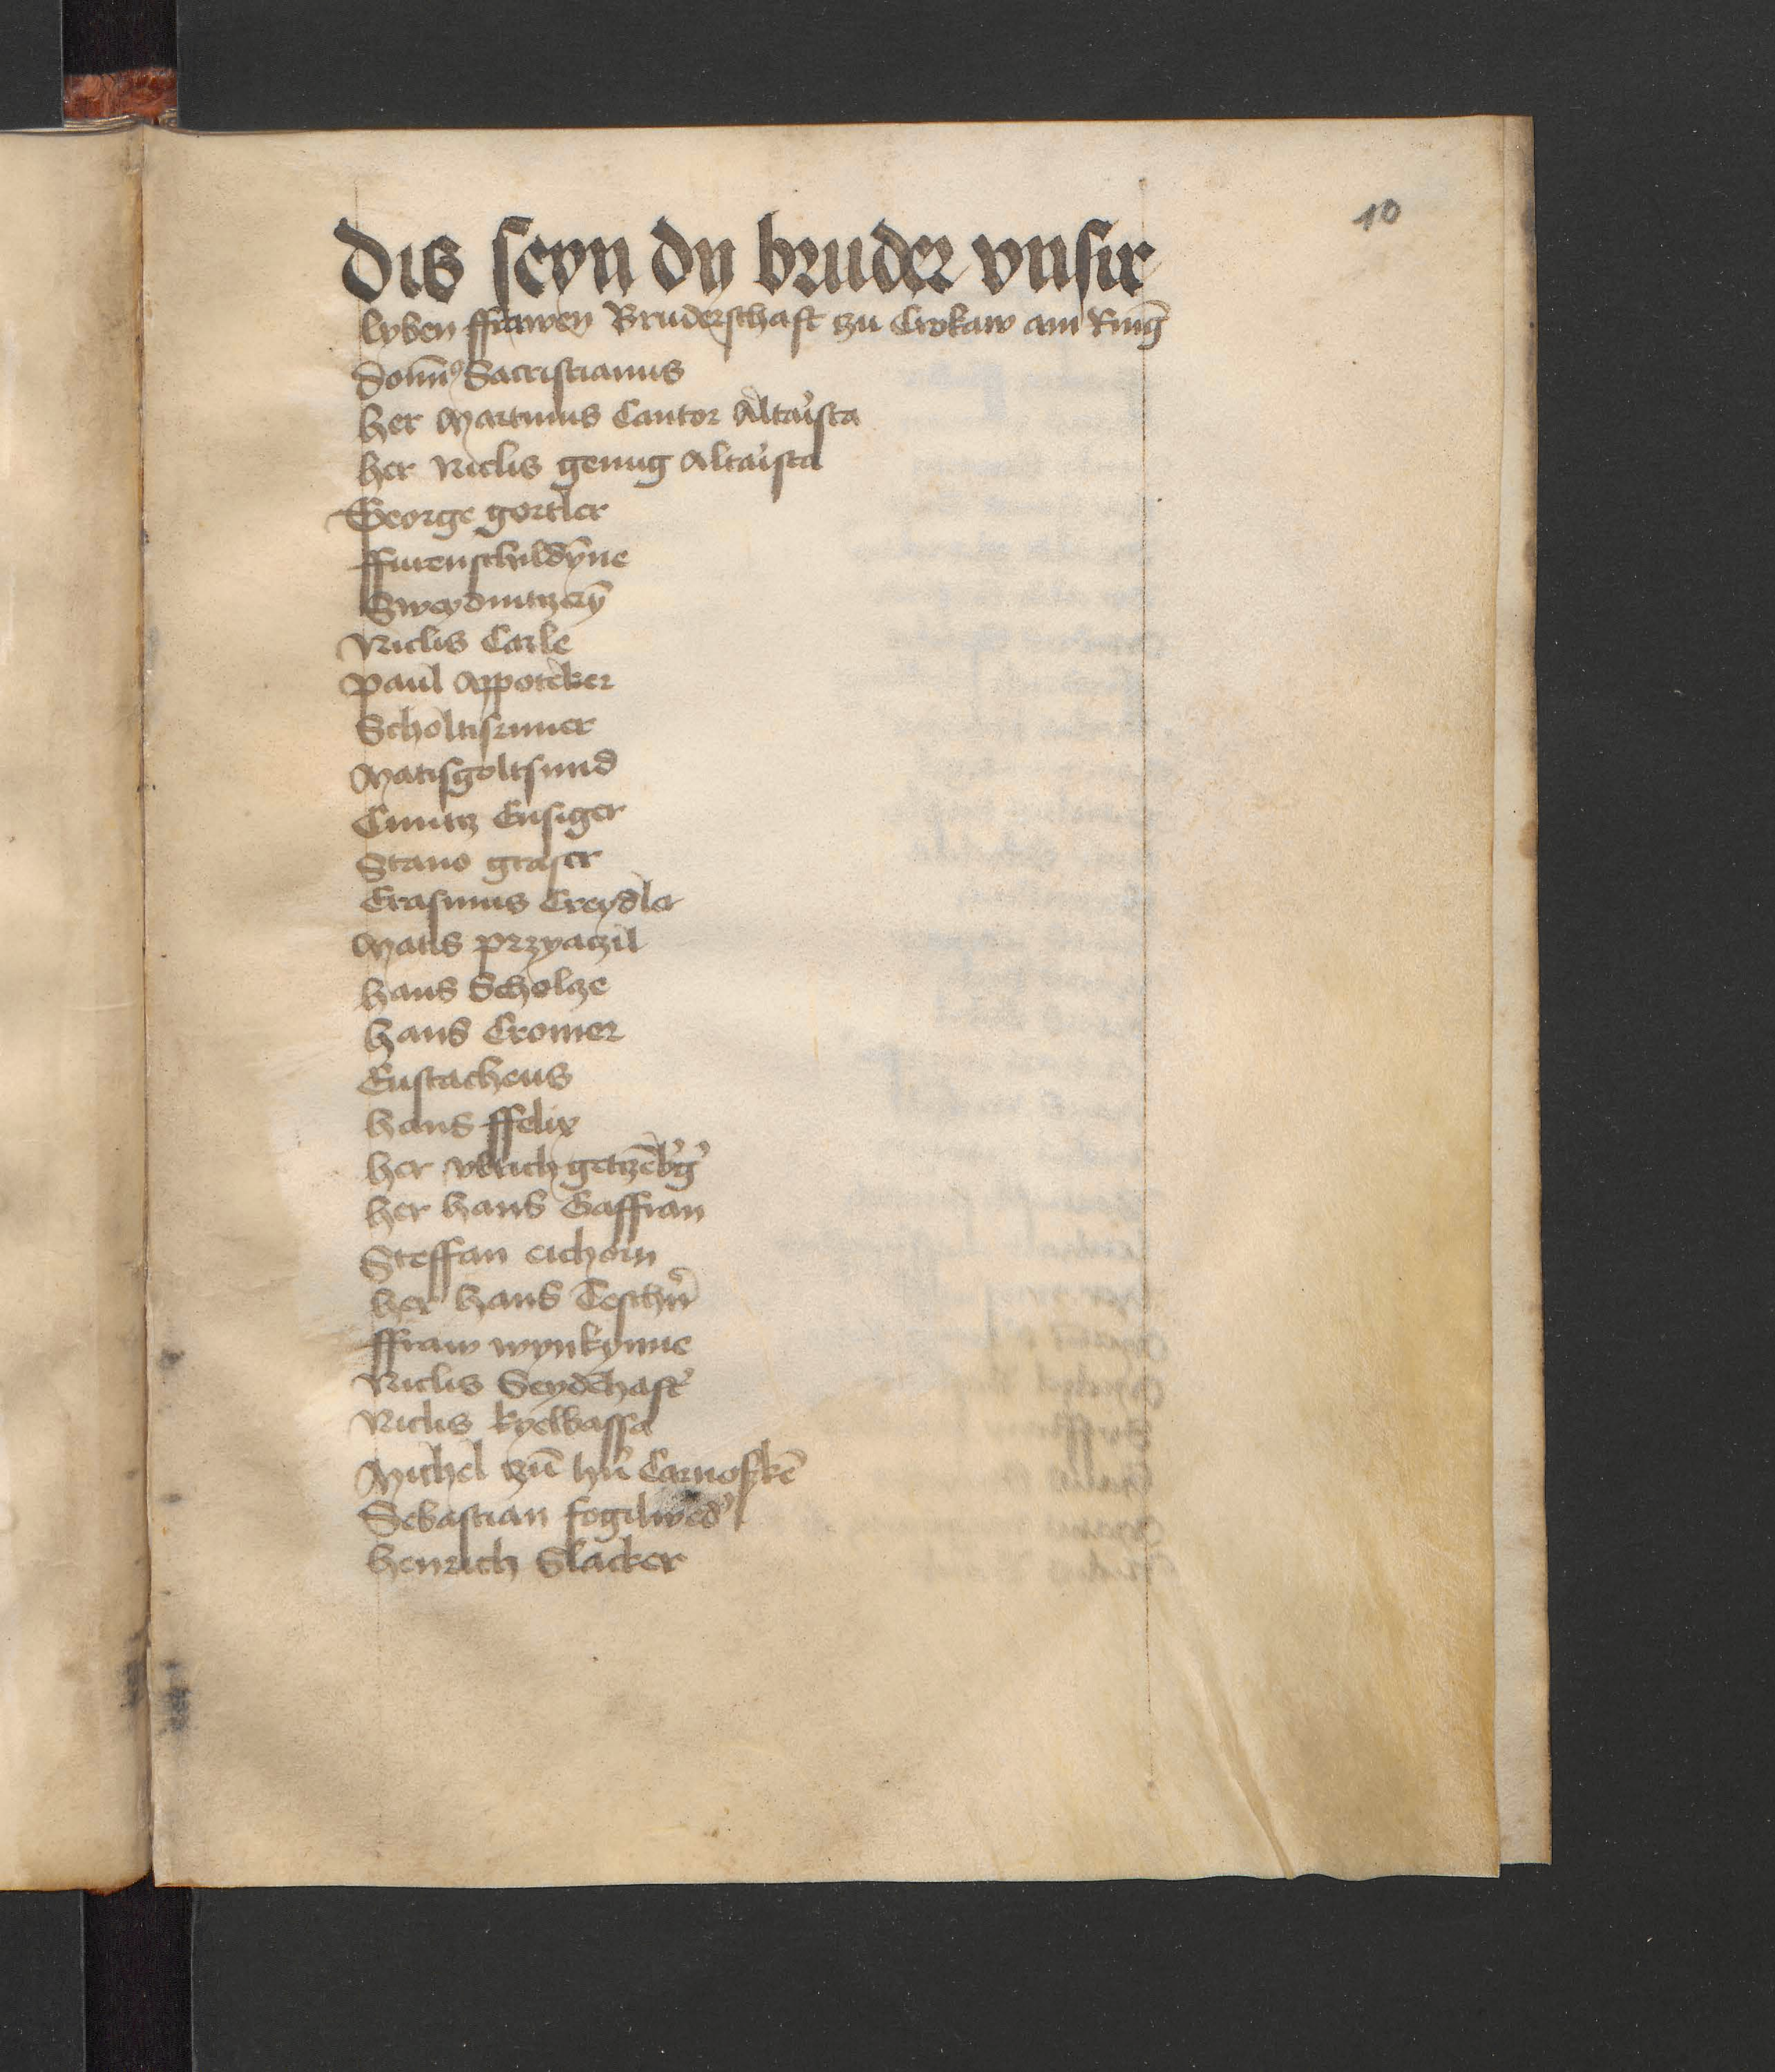 10
Dis seyn dy bruder vnsir
lyben ffrawen Bruderschaft zu Crokaw am Ring
domin9 Sacristianus
her Martinus Cantor Altarista
her Niclis genug Altarista
George gortler
ffurenschildynne
Sweydnitzeryn̄
Niclis Carle
Paul Appoteker
Scholtis
Matis goltsmid
Cuntz Eysiger
Stano graser
Erasmus Creydler
Matis przyaczil
hans Scholcze
hans Cromer
Eustacheus
hans ffelix
her vlrich getzēb'g'
her hans Gaffran
Steffan eichorn
her hans Teschn'
ffraw wynkynne
Niclis Seydēhaft'
Niclis kyelbassa
Michel zū hn' Carnofskē
Sebastian fogilwed'
henrich Slacker